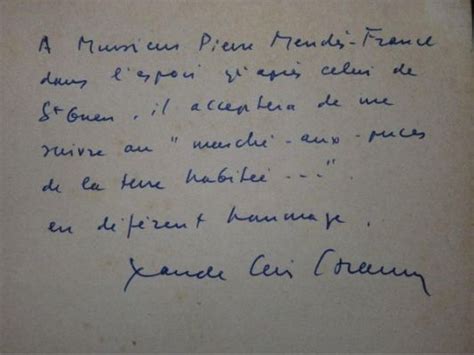 A Monsieur Pierre Mendès-France
dans l'espoir qu'après celui de
St Ouen, il acceptera de me
suivre au "marché-aux-puces
de la terre habitée ---".
en déférent hommage.